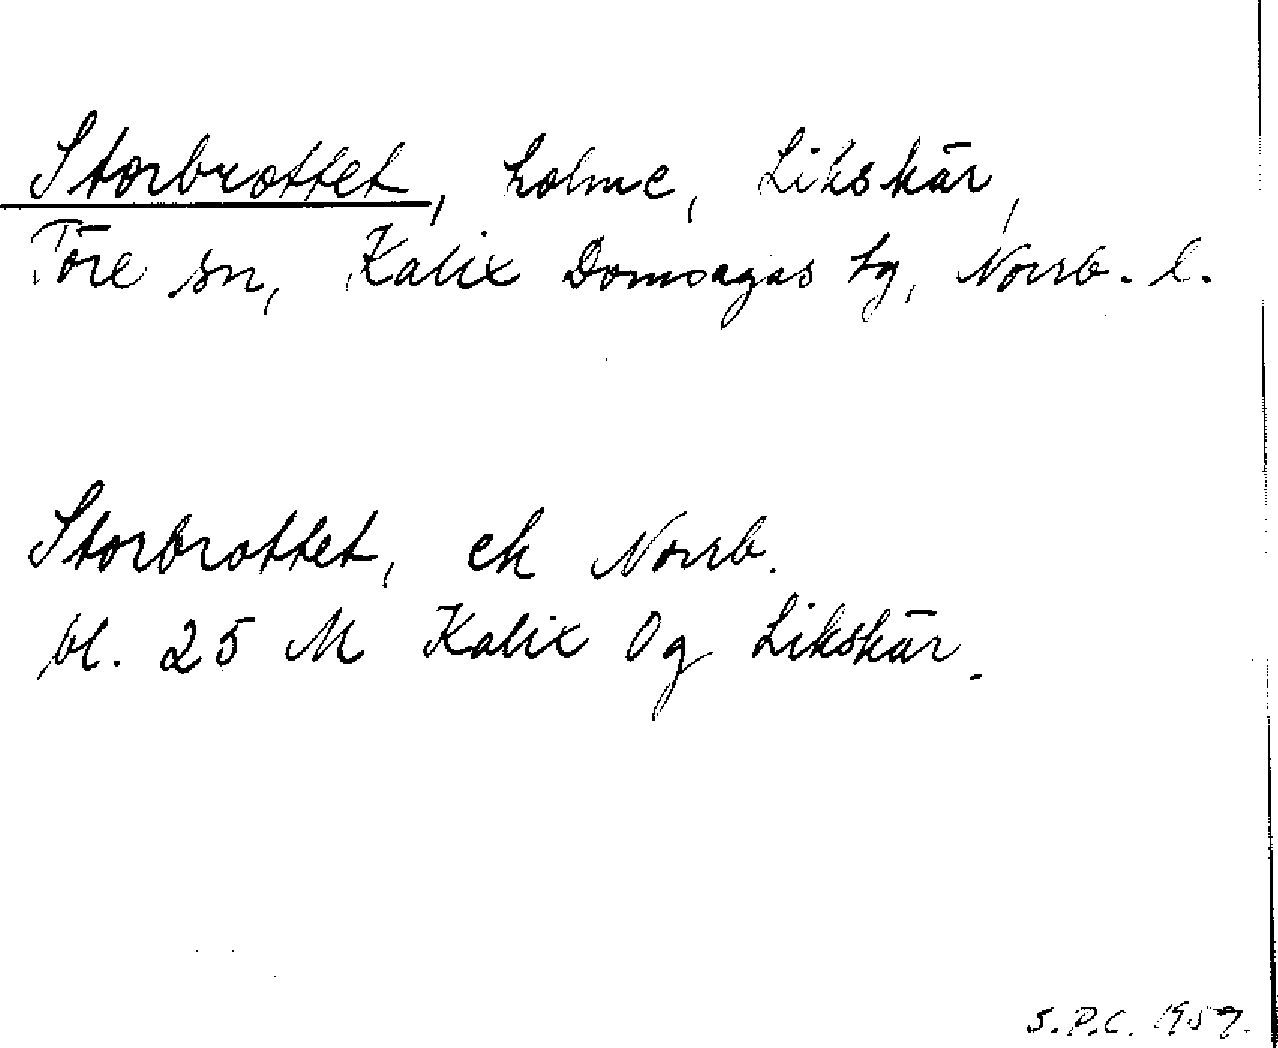 Storbrottet, holme, Likskär,
Töre sn, Kalix Domsagas tg, Norrb. l.
Storbrottet, ek Norrb.
bl. 25 M Kalix Og Likskär.
S.P.C. 1957.